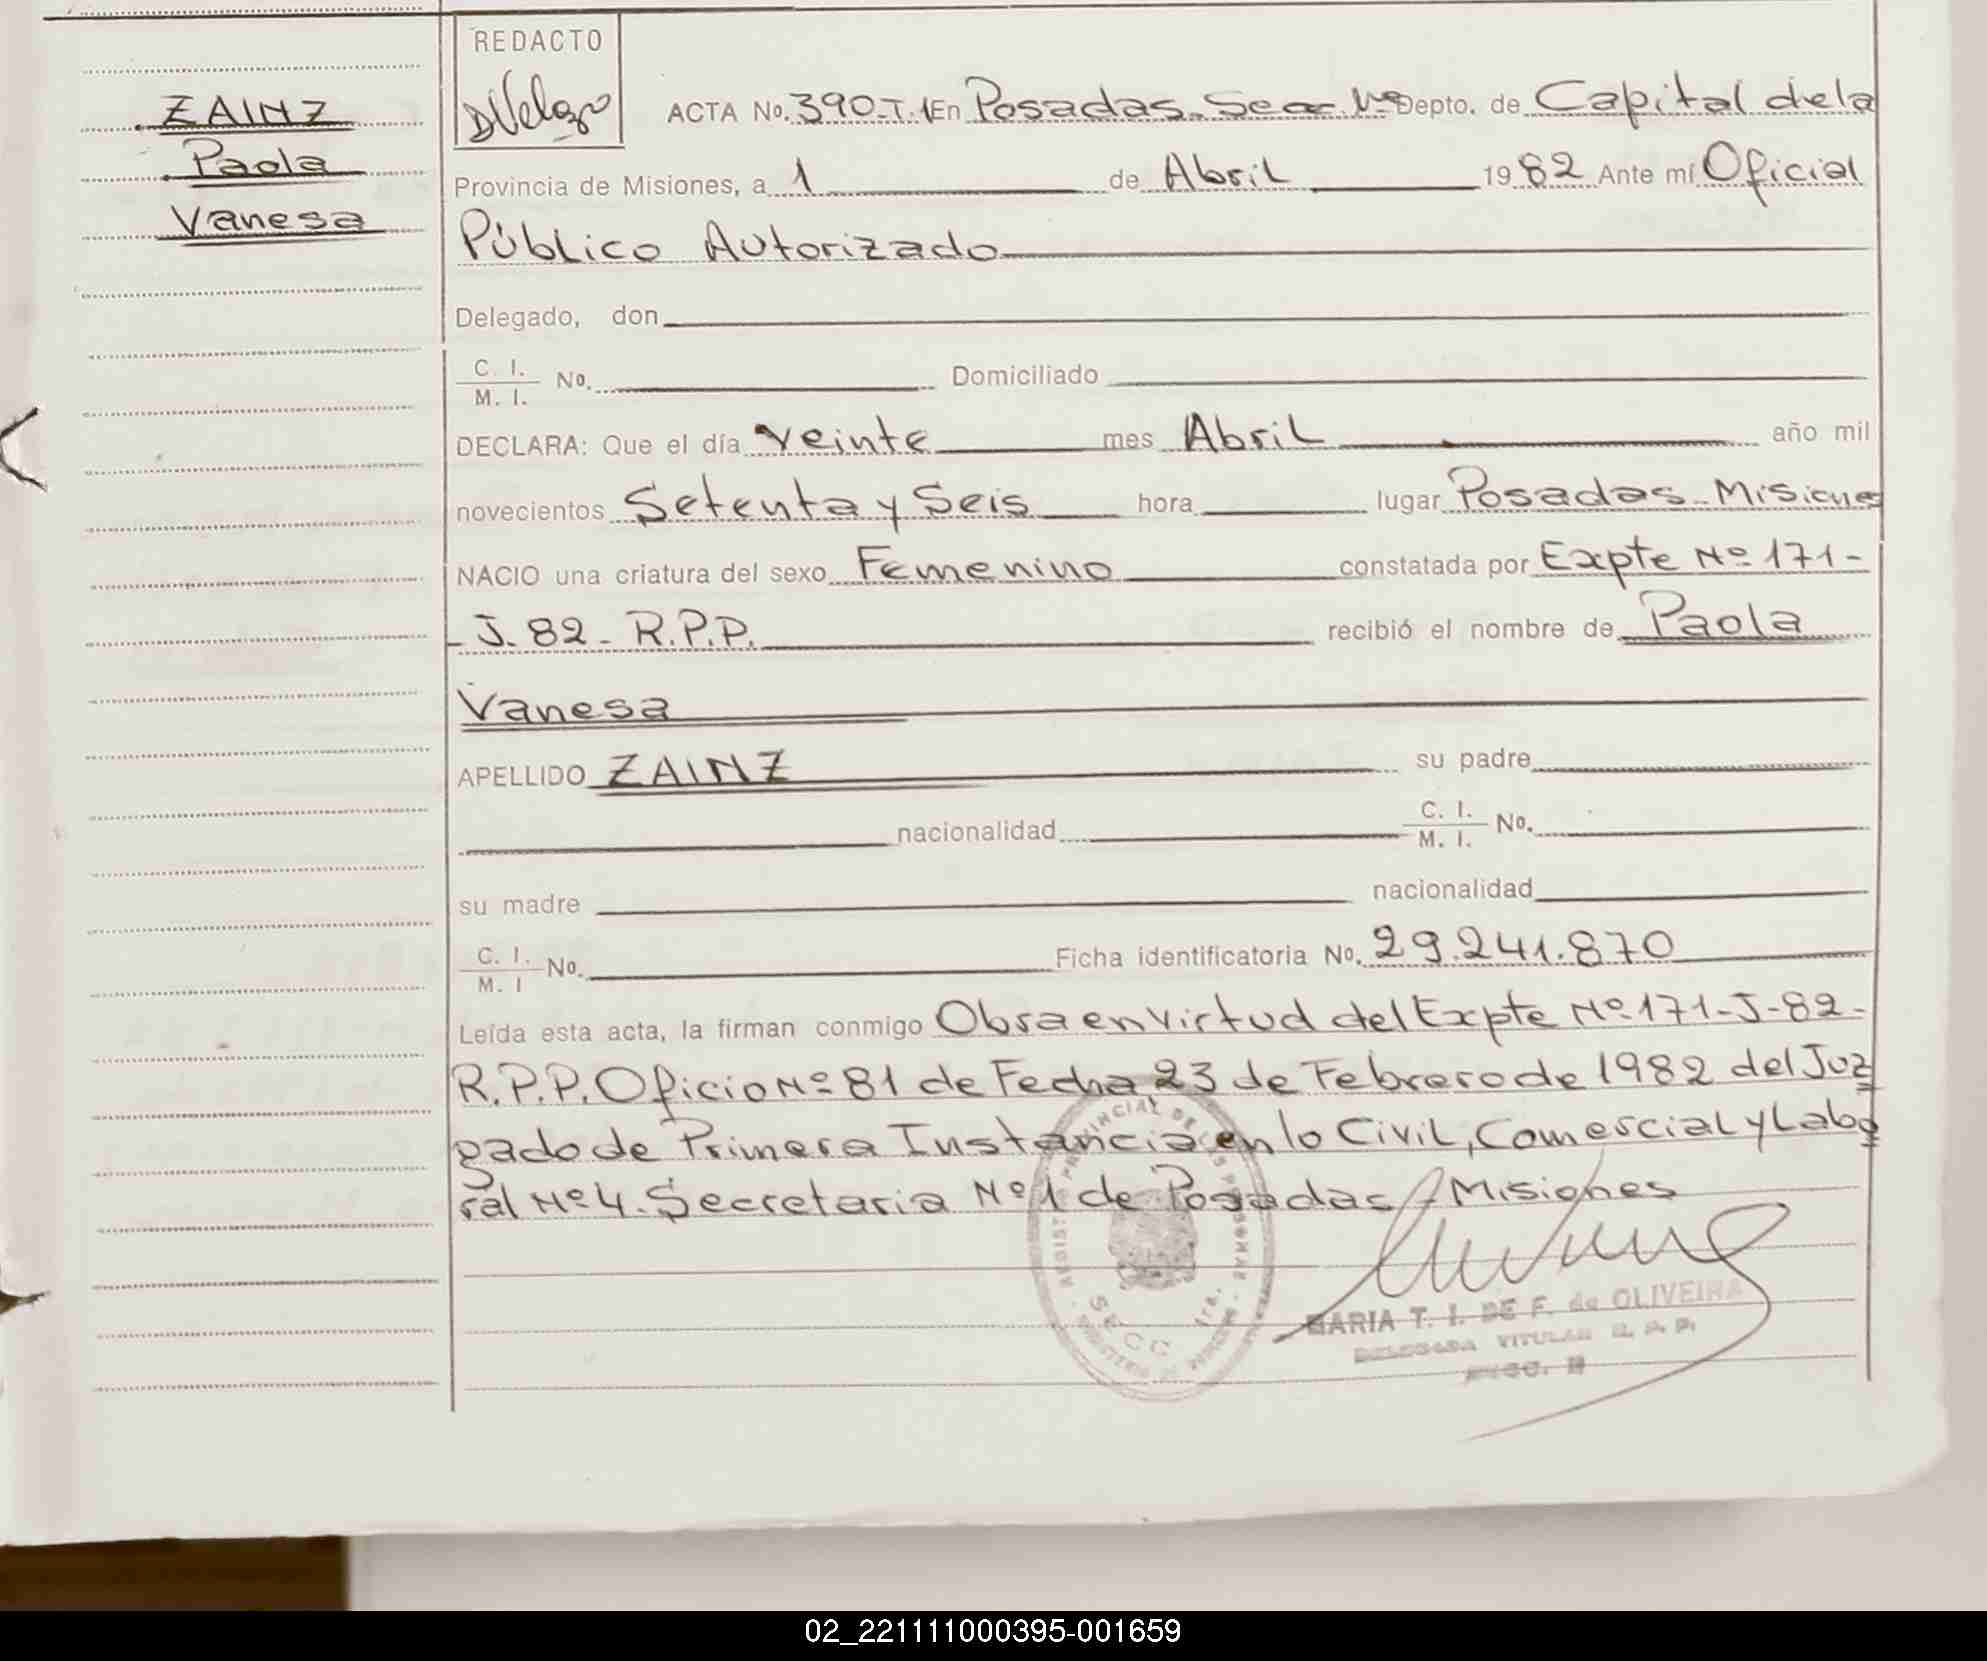 REDACTO
ZAINZ
Paola
Vanesa
ACTA No. 390-T.1 En Posadas. Secc. 1ra Depto. de Capital de la
Provincia de Misiones, a 1 de Abril 1982 Ante mí Oficial
Público Autorizado
Delegado, don
C. I. / M. I. No. Domiciliado
DECLARA: Que el día veinte mes Abril año mil
novecientos Setenta y Seis hora lugar Posadas - Misiones
NACIO una criatura del sexo Femenino constatada por Expte Nº 171-
- J. 82 - R.P.P. recibió el nombre de Paola
Vanesa
APELLIDO ZAINZ su padre
nacionalidad C. I. / M. I. No.
su madre nacionalidad
C. I. / M. I No. Ficha identificatoria No. 29.241.870
Leída esta acta, la firman conmigo Obra en virtud del Expte Nº 171-J-82-
R.P.P. Oficio Nº 81 de Fecha 23 de Febrero de 1982 del Juz
gado de Primera Instancia en lo Civil, Comercial y Labo
ral Nº 4. Secretaria Nº 1 de Posadas - Misiones
SECC 1ra.
MARIA T. I. DE F. de OLIVEIRA
DELEGADA TITULAR R. P. P.
02_221111000395-001659